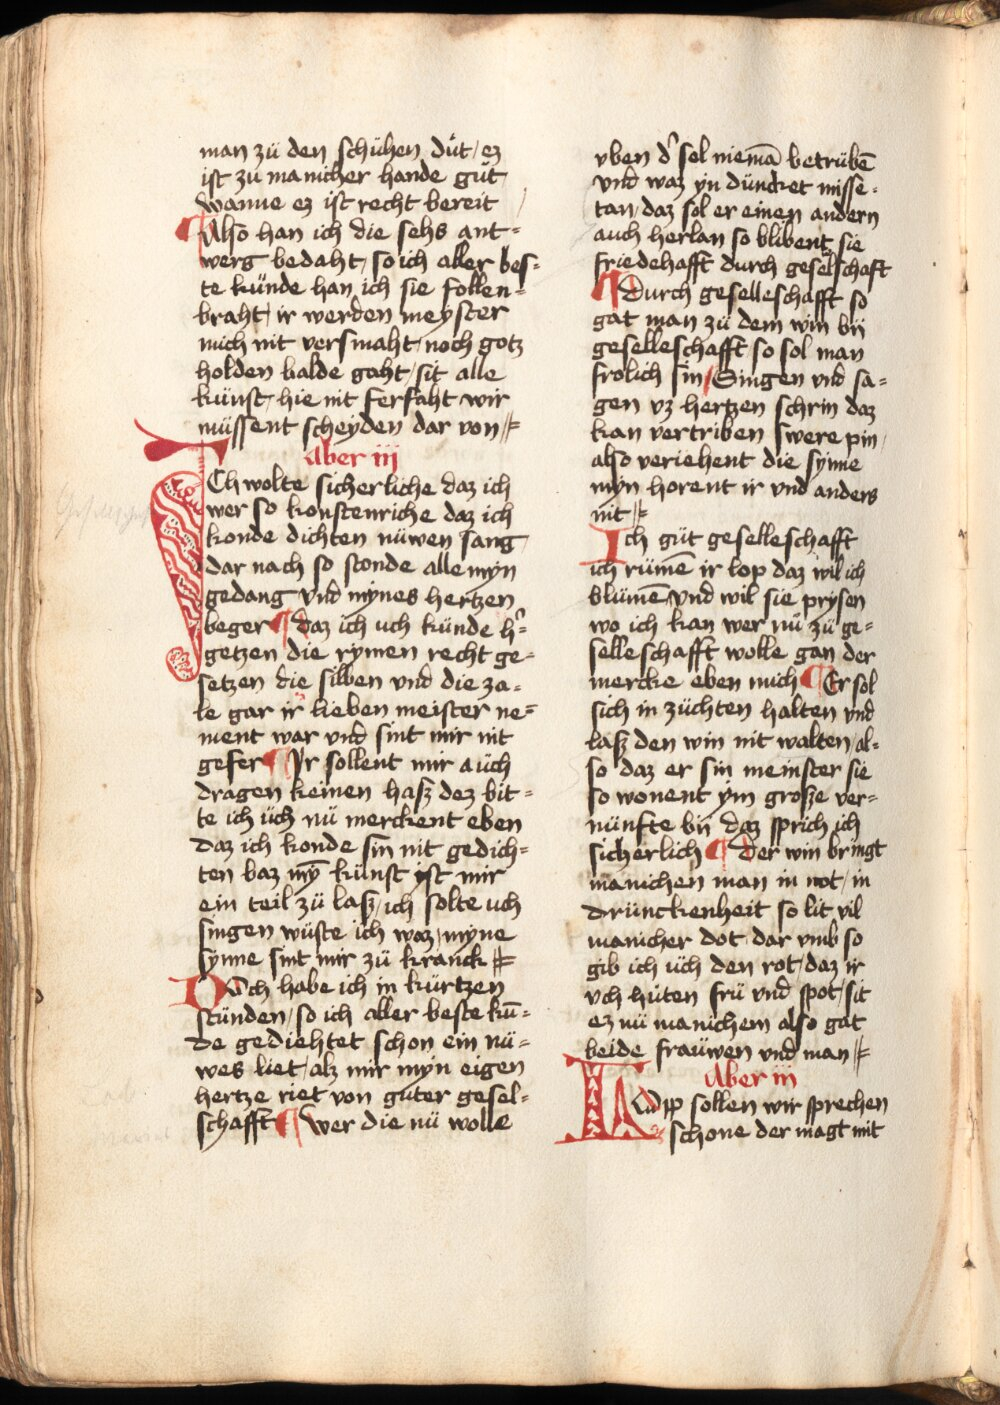 man zü den schühen düt / ez
ist zü manicher hande güt
wanne ez ist recht bereit
¶ Also han ich die sehs ant=
werg bedaht / so ich aller bes=
te künde han ich sie follen=
braht / ir werden meyster
mich nit versmaht / noch gotz
holden balde gaht / sit alle
künst / hie nit ferfaht wir
müssent scheyden dar von
Aber iij
ICh wolte sicherliche daz ich
wer so konstenriche daz ich
konde dichten nüwen sang
dar nach so stonde alle myn
gedang vnd mynes hertzen
beger ¶ daz ich uch künde h'
getzen die rymen recht ge=
setzen die silben vnd die za=
le gar ir lieben meister ne=
ment war vnd sint mir nit
gefer ¶ Ir sollent mir auch
dragen keinen hasz dez bit=
te ich üch nü merckent eben
daz ich konde sin nit gedich=
ten baz my̅ künst ist mir
ein teil zü lasz / ich solte uch
singen wüste ich waz / myne
synne sint mir zü kranck
DOch habe ich in kürtzen
stünden / so ich aller beste ku̅=
de gediehtet schon ein nü=
wes liet / alz mir myn eigen
hertze riet von güter gesel=
schafft ¶ wer die nü wolle
vben d' sol niema̅ betrübe̅
vnd waz yn düncket misse=
tan / daz sol er einen andern
auch herlan so blibent sie
friedehafft durch geselschaft
¶ Durch geselleschafft so
gat man zü dem win bij
geselleschafft so sol man
frolich sin / Singen vnd sa=
gen vz hertzen schrin daz
kan vertriben swere pin /
also veriehent die synne
myn horent ir vnd anders
nit
Ich güt geselleschafft
ich rüme̅ ir lop daz wil ich
blüme̅ vnd wil sie prysen
wo ich kan wer nü zü ge=
selleschafft wolle gan der
mercke eben mich ¶ Er sol
sich in züchten halten vnd
lasz den win nit walten / al=
so daz er sin meinster sie
so wonent ym grosze ver=
nünfte bij daz sprich ich
sicherlich ¶ der win bringt
manichen man in not / in
drünckenheit so lit vil
manicher dot dar vmb so
gib ich üch den rot / daz ir
vch hüten frü vnd spot / sit
ez nü manichem also gat
beide fraüwen vnd man
Aber iij
sollen wir sprechen
schone der magt mit